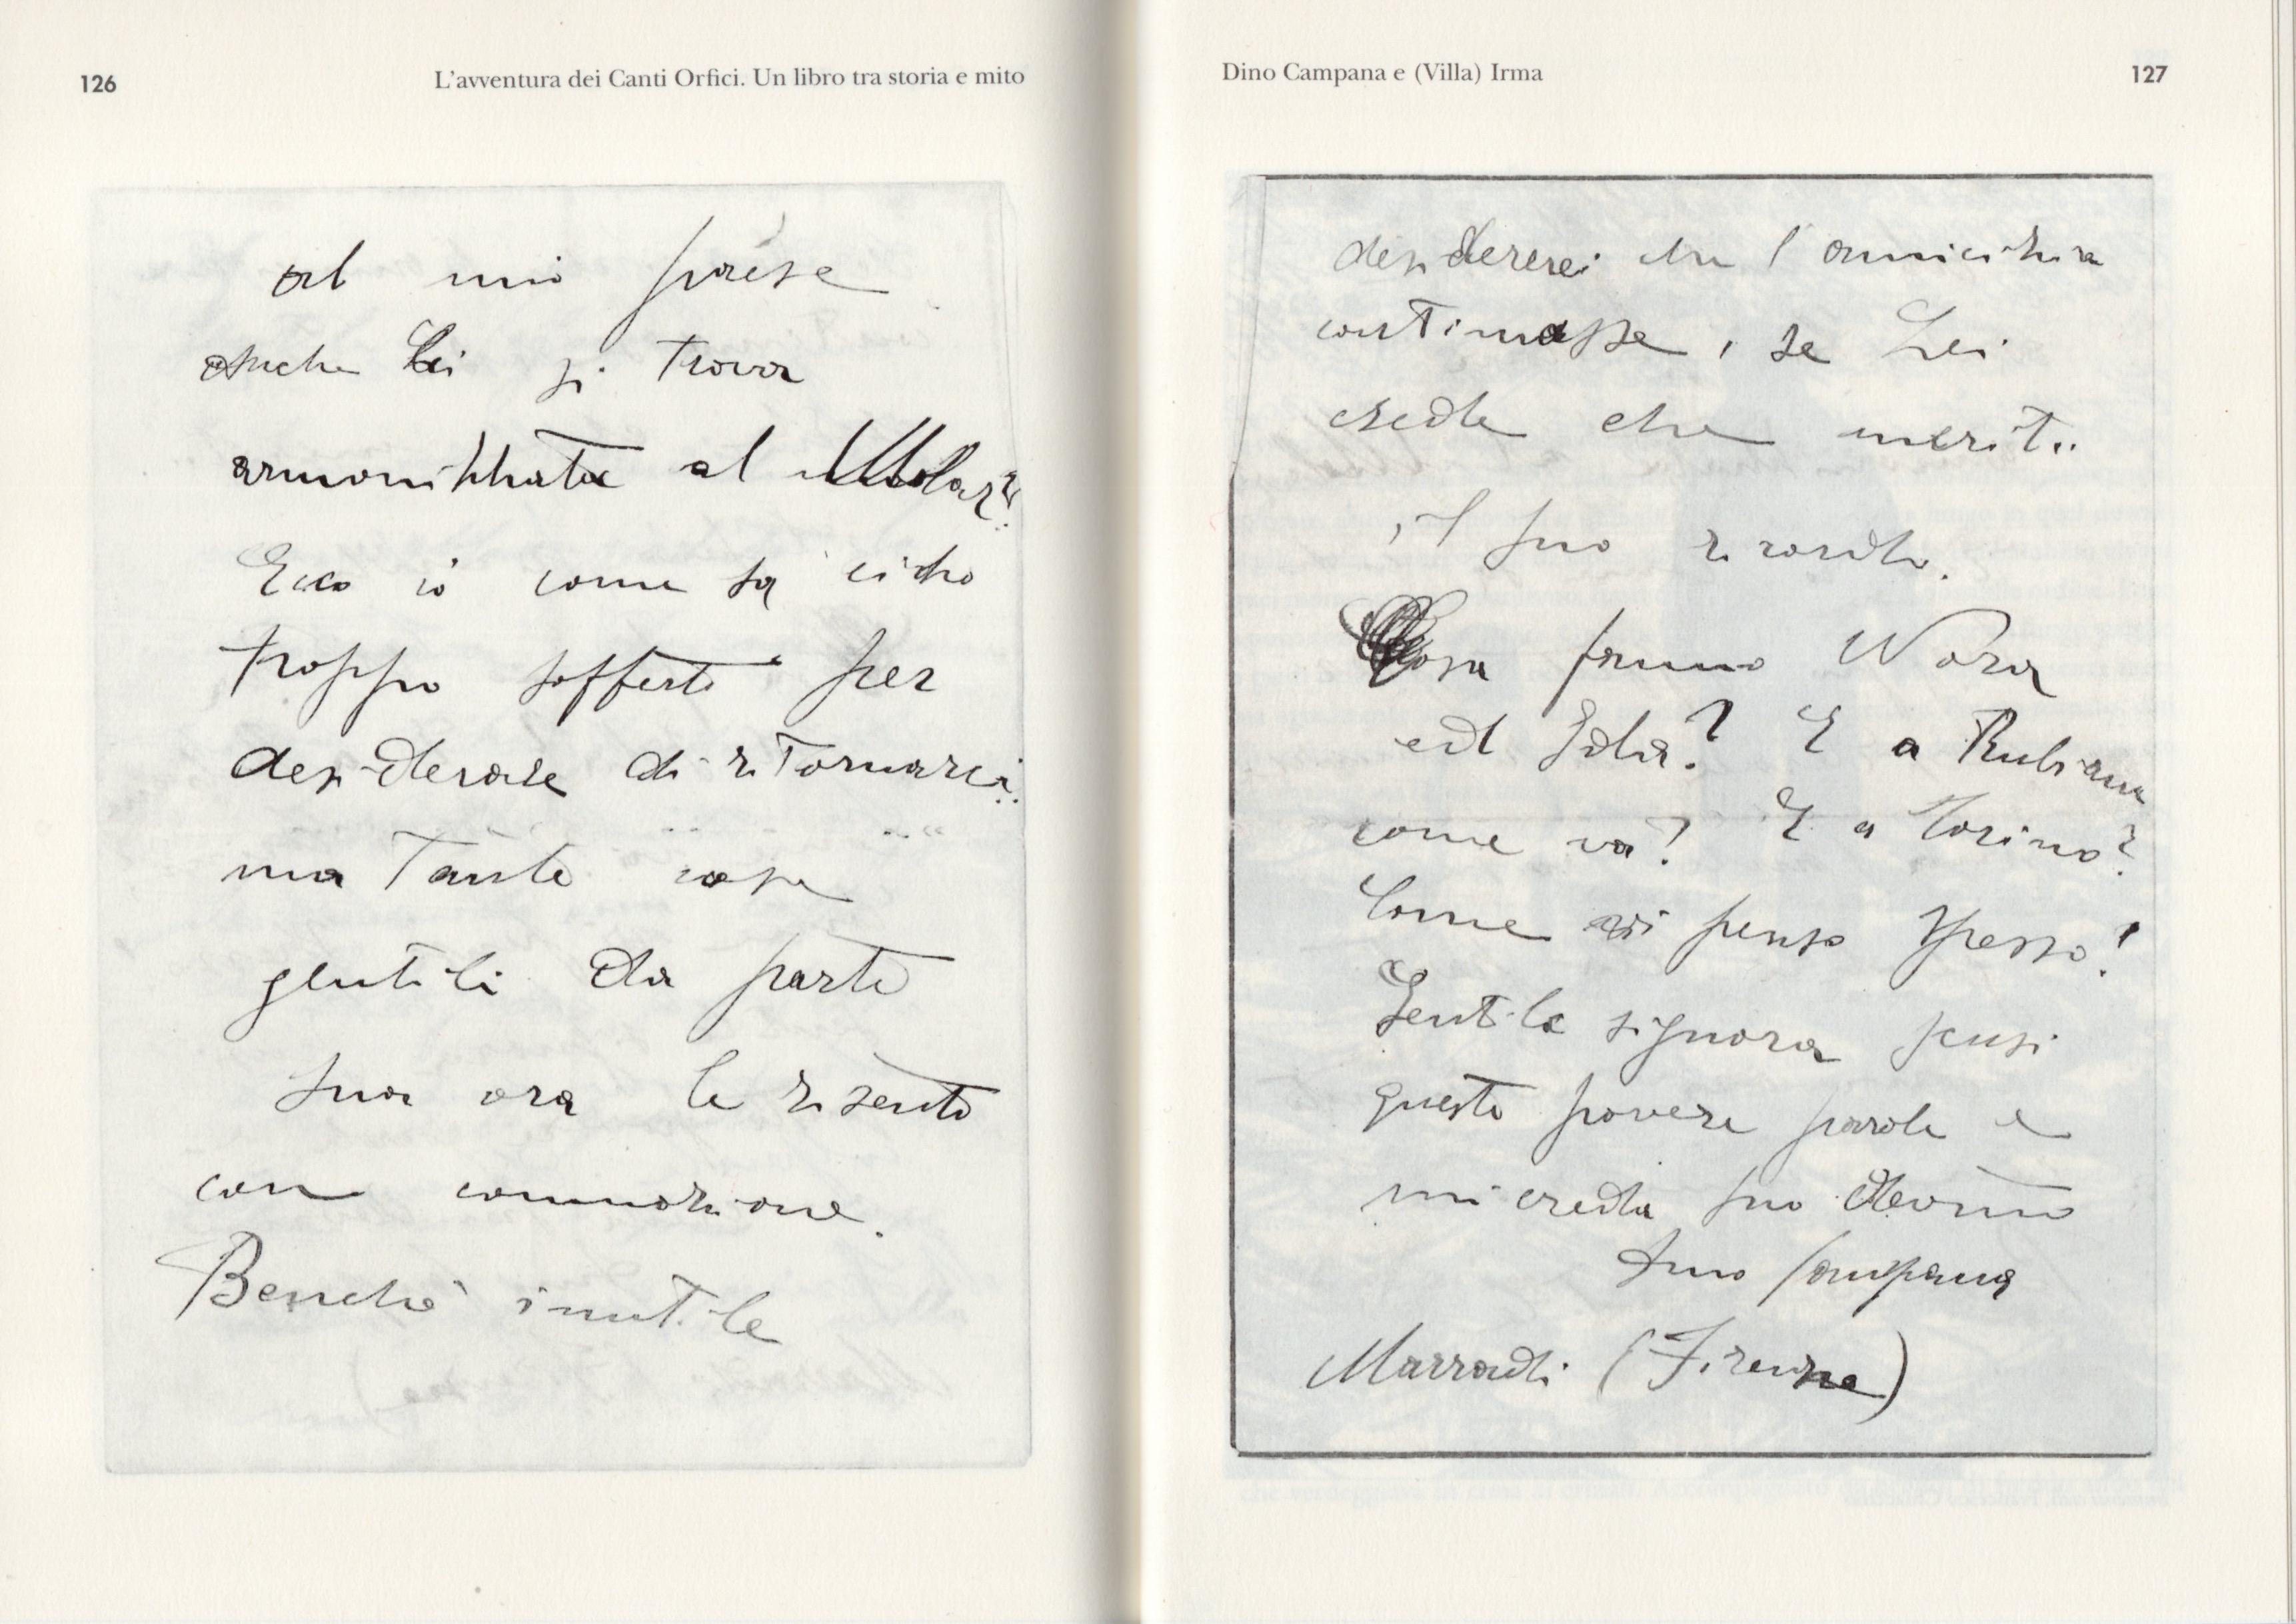 126
L'avventura dei Canti Orfici. Un libro tra storia e mito
al mio paese
anche Lei si trova
armonizzata al
Ecco io come sa ci ho
troppo sofferto per
desiderare di ritornarci..
ma tante cose
gentili da parte
sua ora le risento
con commozione.
Benchè inutile
Dino Campana e (Villa) Irma
127
desidererei che l'amicizia
continuasse, se Lei
crede che meriti.
il suo ricordo.
Cosa fanno Nora
ed Ida? E a Rubiana
come va? E a Torino?
Come vi penso spesso!
Gentile signora scusi
queste povere parole e
mi creda suo devoto
Dino Campana
Marradi (Firenze)